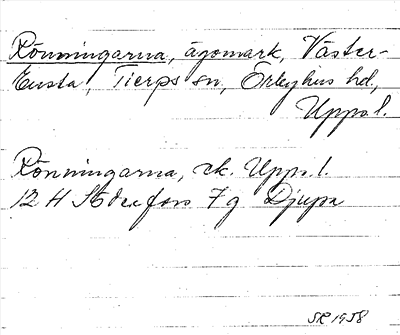 Rönningarna, ägomark, Väster-
Ensta, Tierps sn, Örbyhus hd,
Upps.l.
Rönningarna, ek. Upps.l.
12 H Söderfors 7 g Djupa
SR 1958